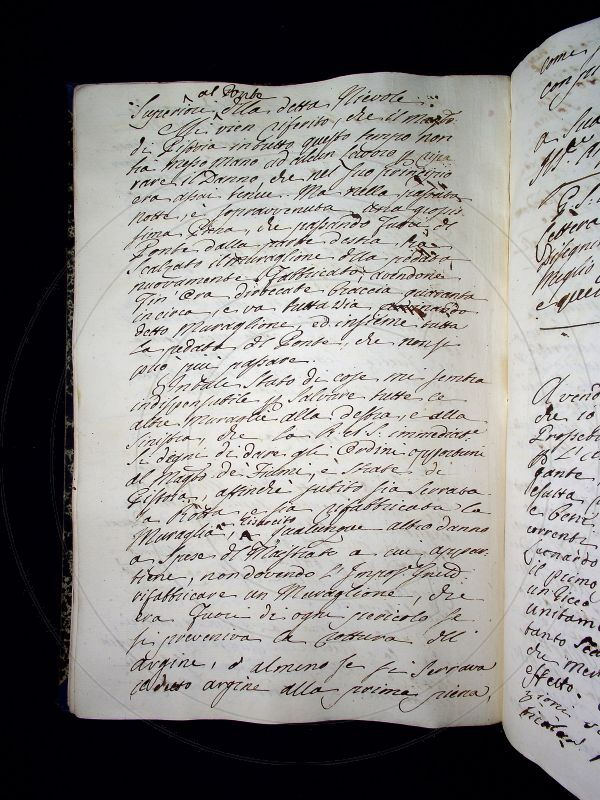 al Ponte
Superiori della detta Nievole.
Mi vien riferito, che il Magto
di Pistoia in tutto questo tempo non
ha messo mano ad alcun lavoro p ripa
rare il Danno, che nel suo principio
era assai tenue. Ma nella passata
notte, è sopravvenuta una grossis
sima Piena, che passando fuori del
Ponte dalla parte destra, ha
scalzato il muraglione della
nuovamente fabbricato, avendone
fin' ora diroccate braccia quaranta
in circa, e va tutta via
detto Muraglione, ed insieme tutta
la pedata del Ponte, che non si
può più passare.
In tale stato di cose mi sembra
indispensabile p salvare tutte le
altre muraglie alla destra, e alla
sinistra, che la R. A. S. immediate
si degni di dare gli Ordini opportuni
al Magto de' Fiumi, e Strade di
Pistoia, affinchè subito sia serrata
la Rotta, e sia rifabbricata la
Muraglia, e risarcito qualunque altro danno
a spese del Magistrato a cui appar
tiene, non dovendo l'
rifabbricare un Muraglione, che
era fuori di ogni pericolo se
si preveniva la rottura dell'
argine, o almeno se si serrava
detto argine alla prima piena,
come
a
Lettera
Disegni
Meglio
e
A vend
che io
p
gante,
e beni
correnti
Leonardo
il primo
unitam
tanto
effetto.